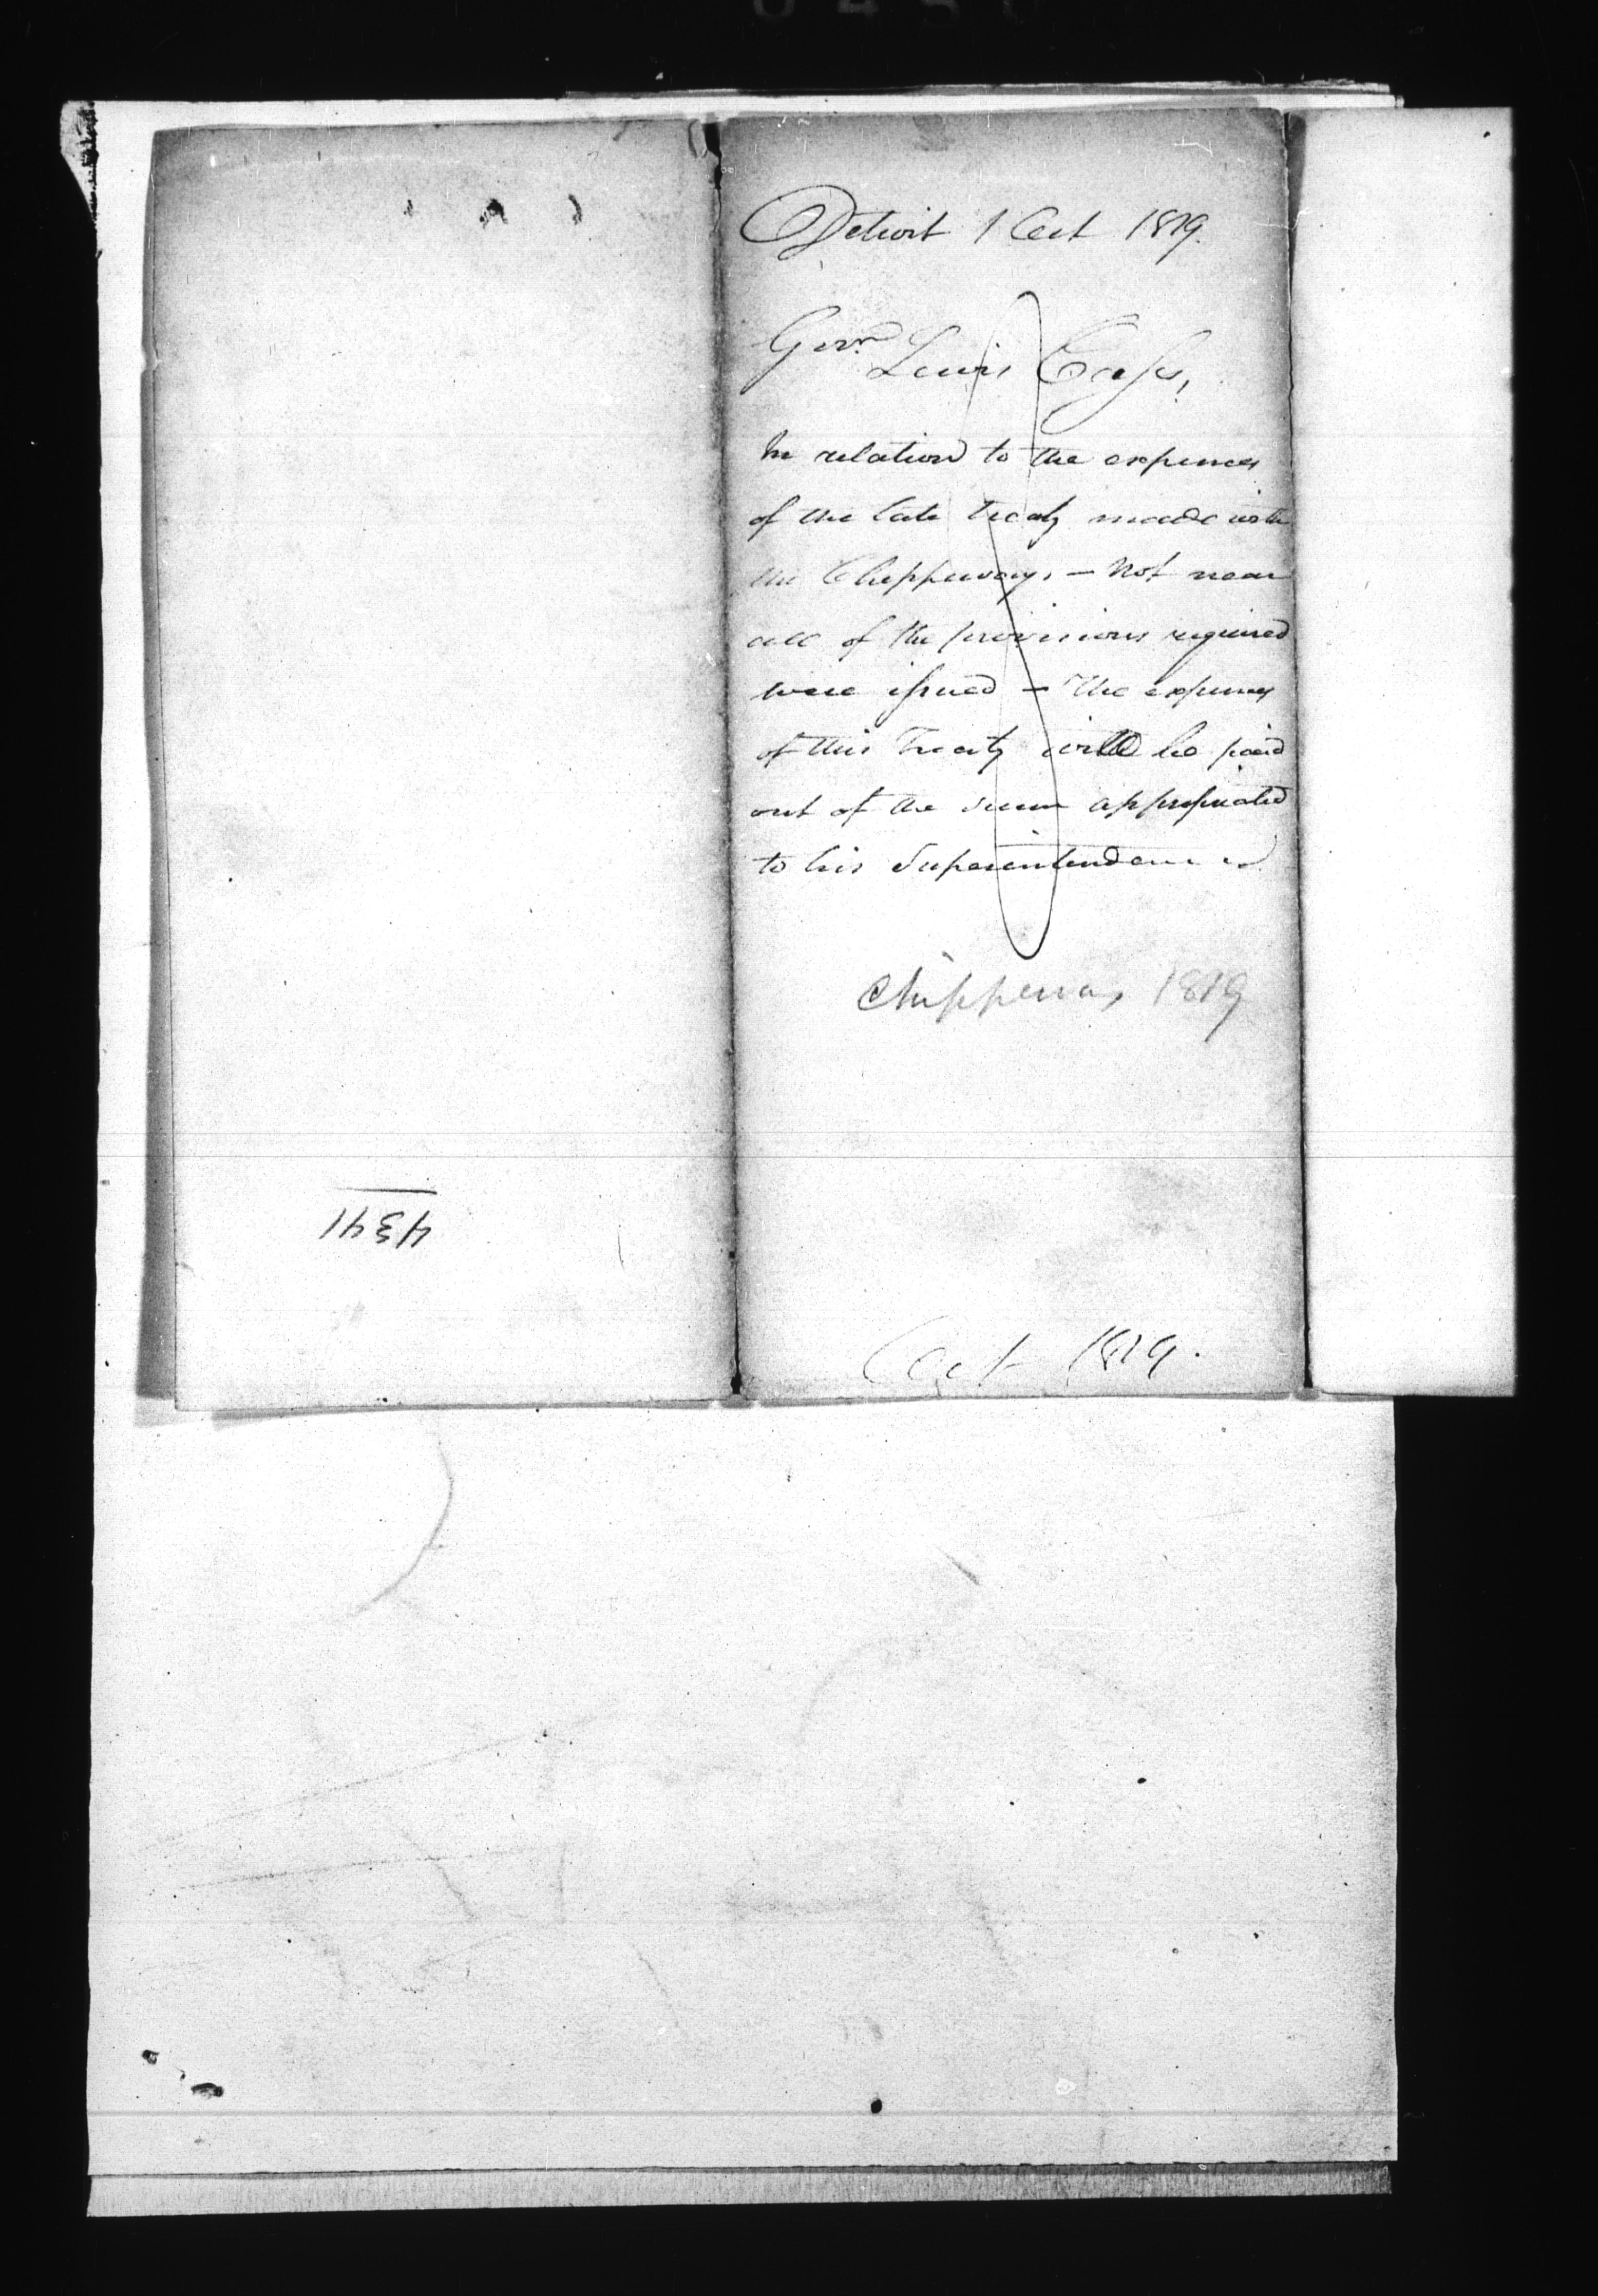 Detroit 1 Oct 1819.
Govr. Lewis Cass,
In relation to the expences
of the late treaty made with
the Chippeways, — Not near
all of the provisions required
were issued — The expenses
of this Treaty will be paid
out of the sum appropriated
to his Superintendence
Chippewas 1819
4341
Oct 1819.